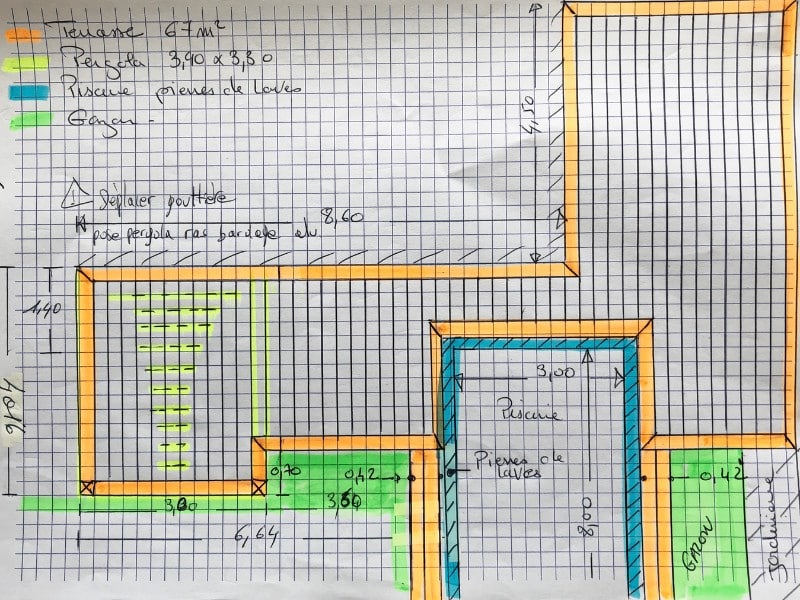 Terrasse 67m²
Pergola 3,90 x 3,30
Piscine pierres de laves
Gazon -
4,50
Déplacer gouttière
8,60
pose pergola ras bardage alu.
1,40
3,00
Piscine
Pierres de
laves
0,70
0,42
0,42
6,64
8,00
GAZON
Jardinière